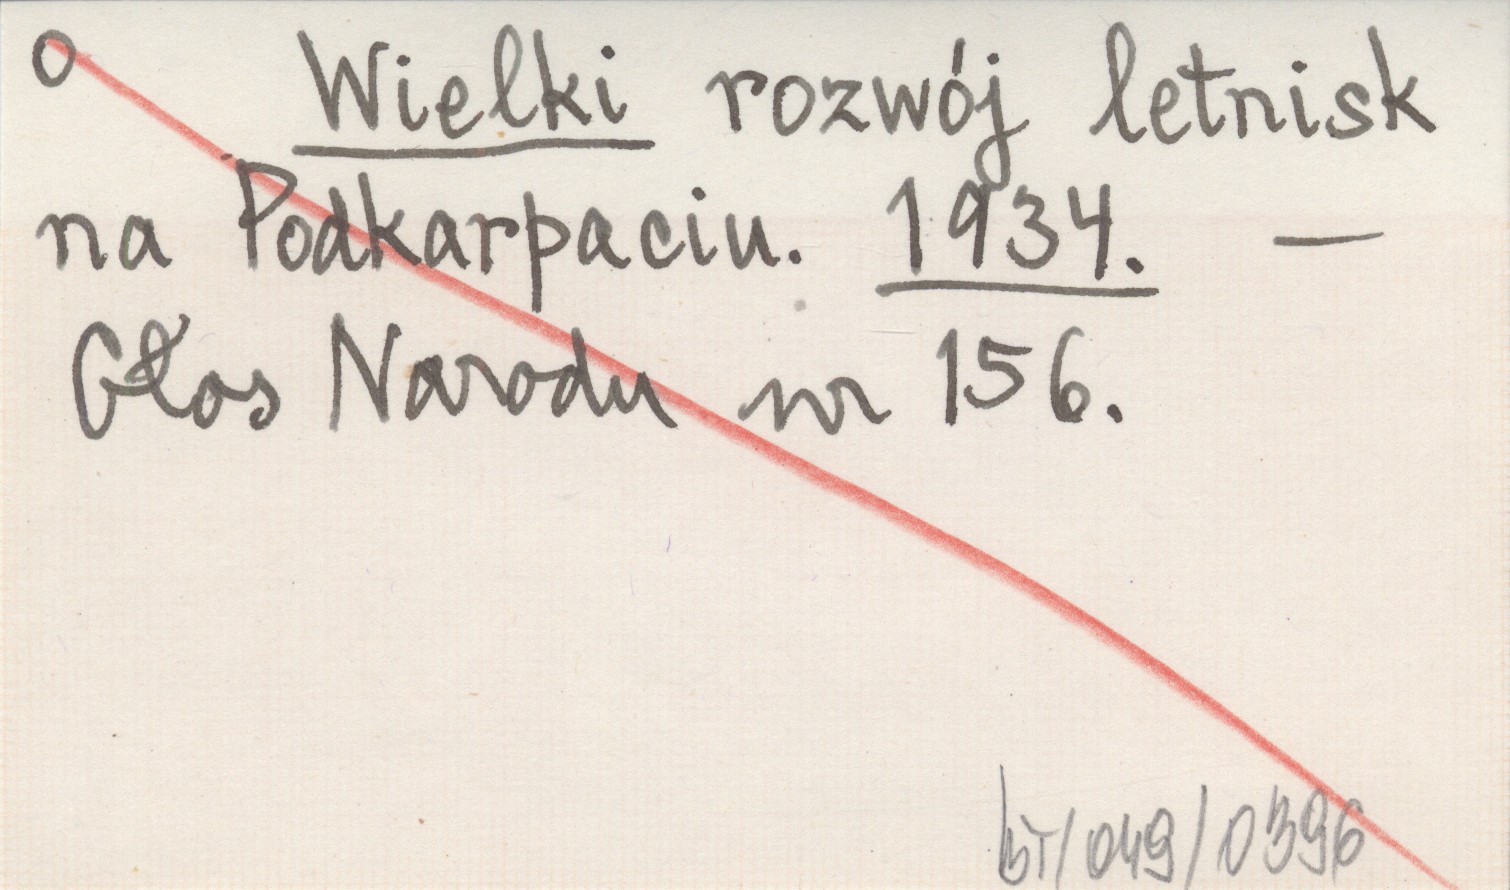 o Wielki rozwój letnisk
na Podkarpaciu. 1934. —
Głos Narodu nr 156.
bł/049/0396